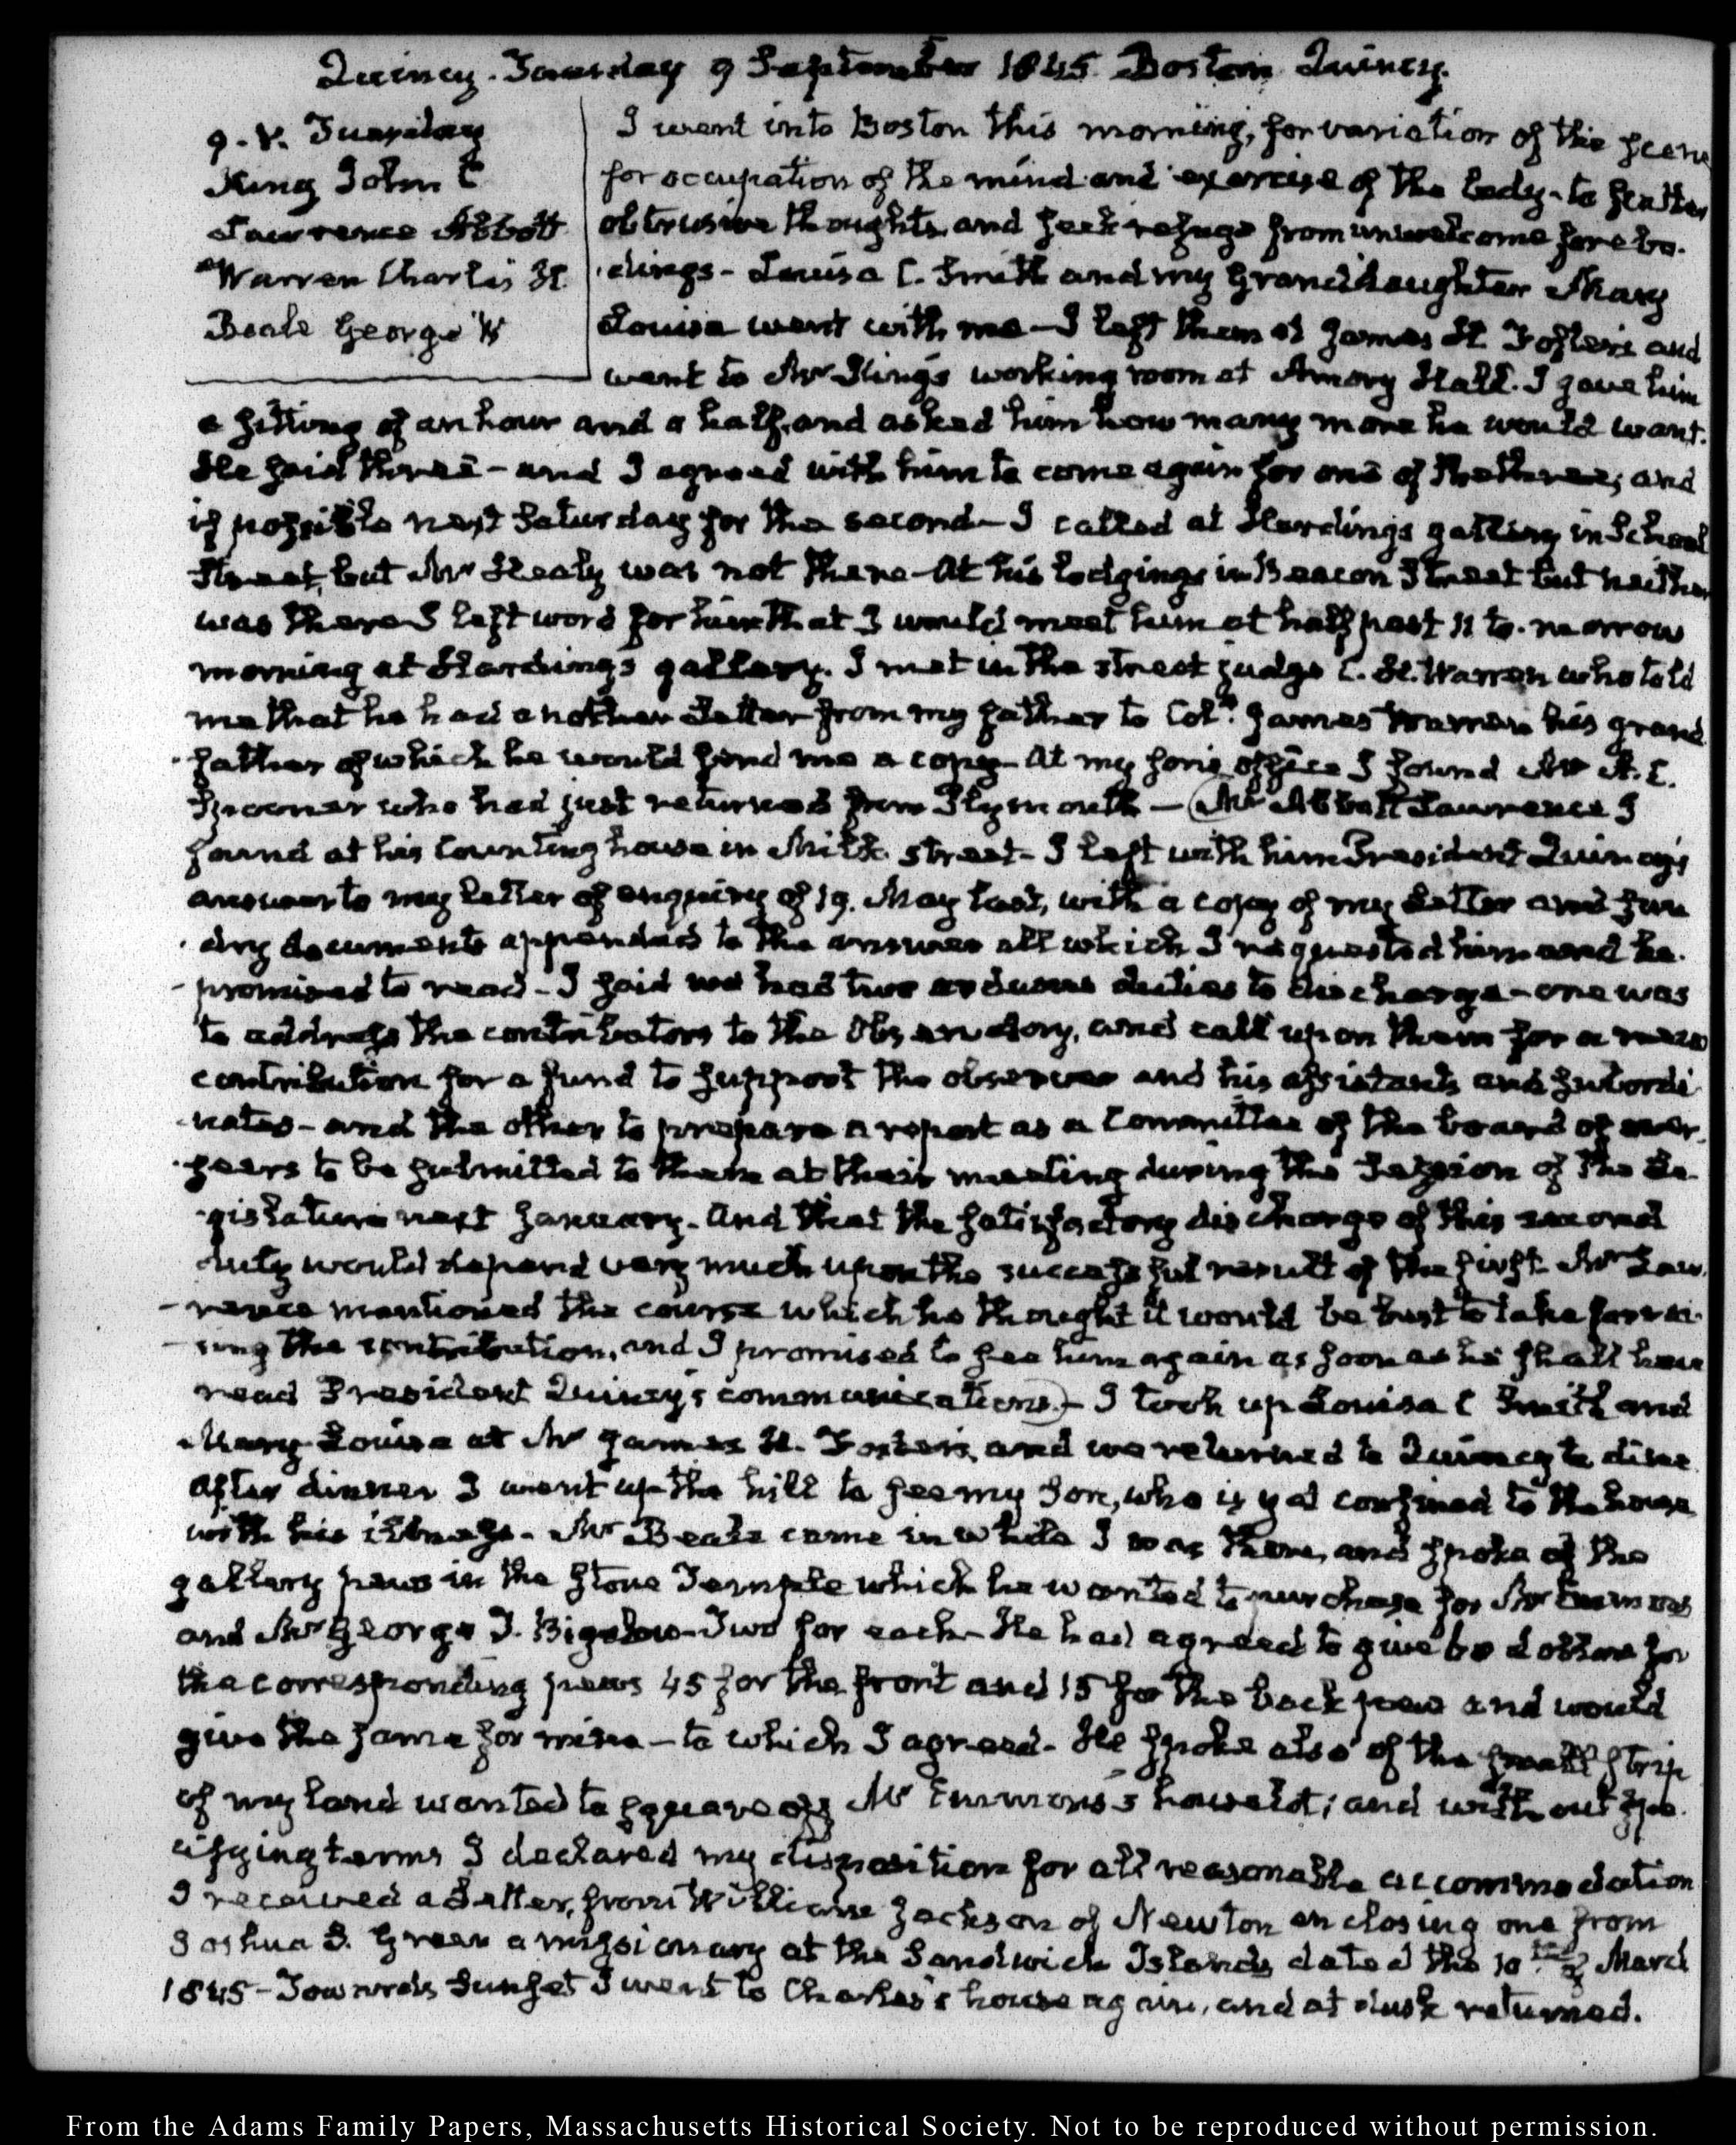 Quincy. Tuesday 9 September 1845. Boston. Quincy.
9. V. Tuesday
King John C
Lawrence Abbott
Warren Charles H.
Beale George W
I went into Boston this morning, for variation of the scene
for occupation of the mind and exercise of the body - to scatter
obtrusive thoughts, and seek refuge from unwelcome forebo-
dings - Louisa C. Smith and my Granddaughter Mary
Louisa went with me - I left them at James H. Foster's and
went to Mr King's working room at Amory Hall. I gave him
a sitting of an hour and a half, and asked him how many more he would want.
He said three - and I agreed with him to come again for one of the three; and
if possible next Saturday for the second - I called at Harding's gallery in School
Street, but Mr Healy was not there - At his lodgings in Beacon Street but neither
was there I left word for him that I would meet him at half past 11 to-morrow
morning at Harding's gallery. I met in the street judge C. H. Warren who told
me that he had another Letter from my father to Coln. James Warren his grand-
father of which he would send me a copy - At my son's office I found Mr A. C.
Spooner who had just returned from Plymouth - (Mr Abbott Lawrence I
found at his Counting house in Milk street - I left with him President Quincy's
answer to my Letter of enquiry of 19. May last, with a copy of my Letter and sun-
dry documents appended to the answer all which I requested him and he
promised to read - I said we had two arduous duties to discharge - one was
to address the contributors to the Observatory, and call upon them for a new
contribution for a fund to support the observer and his assistants and subordi-
nates - and the other to prepare a report as a Committee of the board of over-
seers to be submitted to them at their meeting during the Session of the Le-
gislature next January. And that the satisfactory discharge of this second
duty would depend very much upon the successful result of the first. Mr Law-
rence mentioned the course which he thought it would be best to take for rai-
sing the contribution, and I promised to see him again as soon as he shall have
read President Quincy's communications) - I took up Louisa C Smith and
Mary Louisa at Mr James H. Foster's, and we returned to Quincy to dine
After dinner I went up the hill to see my Son, who is yet confined to the house
with his illness - Mr Beale came in while I was there, and spoke of the
gallery pews in the Stone Temple which he wanted to purchase for Mr Emmons
and Mr George T. Bigelow - Two for each - He had agreed to give 60 dollars for
the corresponding pews 45 for the front and 15 for the back pew and would
give the same for mine - to which I agreed - He spoke also of the small strip
of my land wanted to square off Mr Emmons's house lot; and without spe-
cifying terms I declared my disposition for all reasonable accommodation
I received a Letter, from William Jackson of Newton enclosing one from
Joshua S. Green a missionary at the Sandwich Islands dated the 10th of March
1845 - Towards Sunset I went to Charles's house again, and at dusk returned.
From the Adams Family Papers, Massachusetts Historical Society. Not to be reproduced without permission.